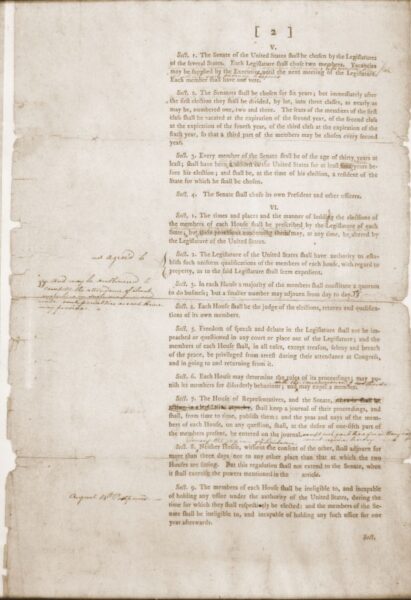 [ 2 ]
V.
Sect. 1. The Senate of the United States shall be chosen by the Legislatures
of the several States. Each Legislature shall chuse two members. Vacancies
may be supplied by the Executive until the next meeting of the Legislature.
Each member shall have one vote.
Sect. 2. The Senators shall be chosen for six years; but immediately after
the first election they shall be divided, by lot, into three classes, as nearly as
may be, numbered one, two and three. The seats of the members of the first
class shall be vacated at the expiration of the second year, of the second class
at the expiration of the fourth year, of the third class at the expiration of the
sixth year, so that a third part of the members may be chosen every second
year.
Sect. 3. Every member of the Senate shall be of the age of thirty years at
least; shall have been a citizen in the United States for at least four years be-
fore his election; and shall be, at the time of his election, a resident of the
State for which he shall be chosen.
Sect. 4. The Senate shall chuse its own President and other officers.
VI.
Sect. 1. The times and places and the manner of holding the elections of
the members of each House shall be prescribed by the Legislature of each
State; but their provisions concerning them may, at any time, be altered by
the Legislature of the United States.
not agreed to
Sect. 2. The Legislature of the United States shall have authority to esta-
blish such uniform qualifications of the members of each house, with regard to
property, as to the said Legislature shall seem expedient.
and may be authorised to
Sect. 3. In each House a majority of the members shall constitute a quorum
to do business; but a smaller number may adjourn from day to day.
Sect. 4. Each House shall be the judge of the elections, returns and qualifica-
tions of its own members.
Sect. 5. Freedom of speech and debate in the Legislature shall not be im-
peached or questioned in any court or place out of the Legislature; and the
members of each House shall, in all cases, except treason, felony and breach
of the peace, be privileged from arrest during their attendance at Congress,
and in going to and returning from it.
Sect. 6. Each House may determine the rules of its proceedings; may pu-
nish its members for disorderly behaviour; may expel a member.
Sect. 7. The House of Representatives, and the Senate,
shall keep a journal of their proceedings, and
shall, from time to time, publish them: and the yeas and nays of the mem-
bers of each House, on any question, shall, at the desire of one-fifth part of
the members present, be entered on the journal.
Sect. 8. Neither House, without the consent of the other, shall adjourn for
more than three days, nor to any other place than that at which the two
Houses are sitting. But this regulation shall not extend to the Senate, when
it shall exercise the powers mentioned in the article.
August 14th Postponed
Sect. 9. The members of each House shall be ineligible to, and incapable
of holding any office under the authority of the United States, during the
time for which they shall respectively be elected: and the members of the Se-
nate shall be ineligible to, and incapable of holding any such office for one
year afterwards.
Sect.